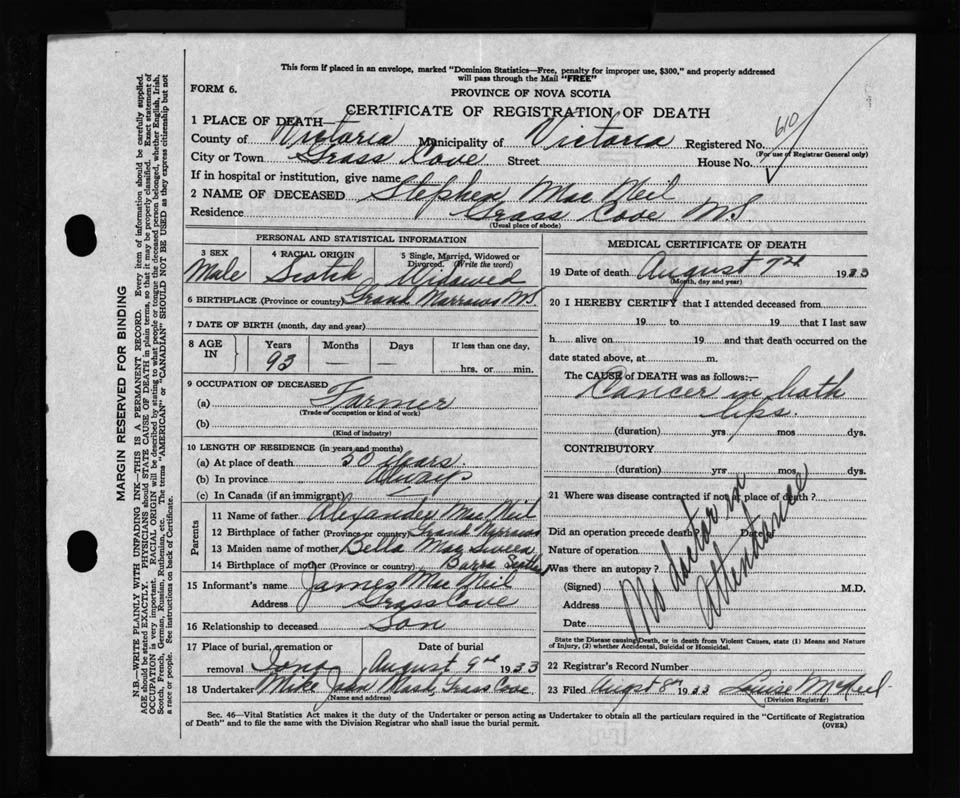 This form if placed in an envelope, marked "Dominion Statistics—Free, penalty for improper use, $300," and properly addressed
will pass through the Mail "FREE"
FORM 6.
PROVINCE OF NOVA SCOTIA
CERTIFICATE OF REGISTRATION OF DEATH
1 PLACE OF DEATH—
County of Victoria Municipality of Victoria Registered No. 610
(For use of Registrar General only)
City or Town Grass Cove Street House No.
If in hospital or institution, give name
2 NAME OF DECEASED Stephen Mac Neil
Residence Grass Cove N.S
(Usual place of abode)
PERSONAL AND STATISTICAL INFORMATION
3 SEX 4 RACIAL ORIGIN 5 Single, Married, Widowed or
Divorced. (Write the word)
Male Scotch Widowed
6 BIRTHPLACE (Province or country) Grand Narrows N.S.
7 DATE OF BIRTH (month, day and year)
8 AGE IN Years Months Days If less than one day,
93 — — hrs. or min.
9 OCCUPATION OF DECEASED
(a) Farmer
(Trade of occupation or kind of work)
(b)
(Kind of industry)
10 LENGTH OF RESIDENCE (in years and months)
(a) At place of death 50 Years.
(b) In province Always
(c) In Canada (if an immigrant) —
Parents
11 Name of father Alexander Mac Neil
12 Birthplace of father (Province or country) Grand Narrows
13 Maiden name of mother Bella
14 Birthplace of mother (Province or country) Barra
15 Informant's name James Mac Neil
Address Grass Cove
16 Relationship to deceased Son
17 Place of burial, cremation or Date of burial
removal Iona August 9th 1933
18 Undertaker Mike John Grass Cove
(Name and address)
MEDICAL CERTIFICATE OF DEATH
19 Date of death August 7th 1933
(Month, day and year)
20 I HEREBY CERTIFY that I attended deceased from
19 to 19 that I last saw
h alive on 19 and that death occurred on the
date stated above, at m.
The CAUSE of DEATH was as follows:—
Cancer in both
lips.
(duration) yrs mos dys.
CONTRIBUTORY
(duration) yrs mos dys.
21 Where was disease contracted if not at place of death?
Did an operation precede death Date
Nature of operation
Was there an autopsy?
(Signed) M.D.
Address
Date
No doctor in
attendance
State the Disease causing Death, or in death from Violent Causes, state (1) Means and Nature
of Injury, (2) whether Accidental, Suicidal or Homicidal.
22 Registrar's Record Number
23 Filed Augst 8th 1933
(Division Registrar)
Sec. 46—Vital Statistics Act makes it the duty of the Undertaker or person acting as Undertaker to obtain all the particulars required in the "Certificate of Registration
of Death" and to file the same with the Division Registrar who shall issue the burial permit.
(OVER)
MARGIN RESERVED FOR BINDING
N.B.—WRITE PLAINLY WITH UNFADING INK—THIS IS A PERMANENT RECORD. Every item of information should be carefully supplied.
AGE should be stated EXACTLY. PHYSICIANS should STATE CAUSE OF DEATH in plain terms, so that it may be properly classified. Exact statement of
OCCUPATION is very important. RACIAL ORIGIN will be described by stating to what people or tongue the deceased person belonged, whether English, Irish,
Scotch, French, German, Russian, Ruthenian, etc. The terms "AMERICAN" or "CANADIAN" SHOULD NOT BE USED as they express citizenship but not
a race or people. See instructions on back of Certificate.